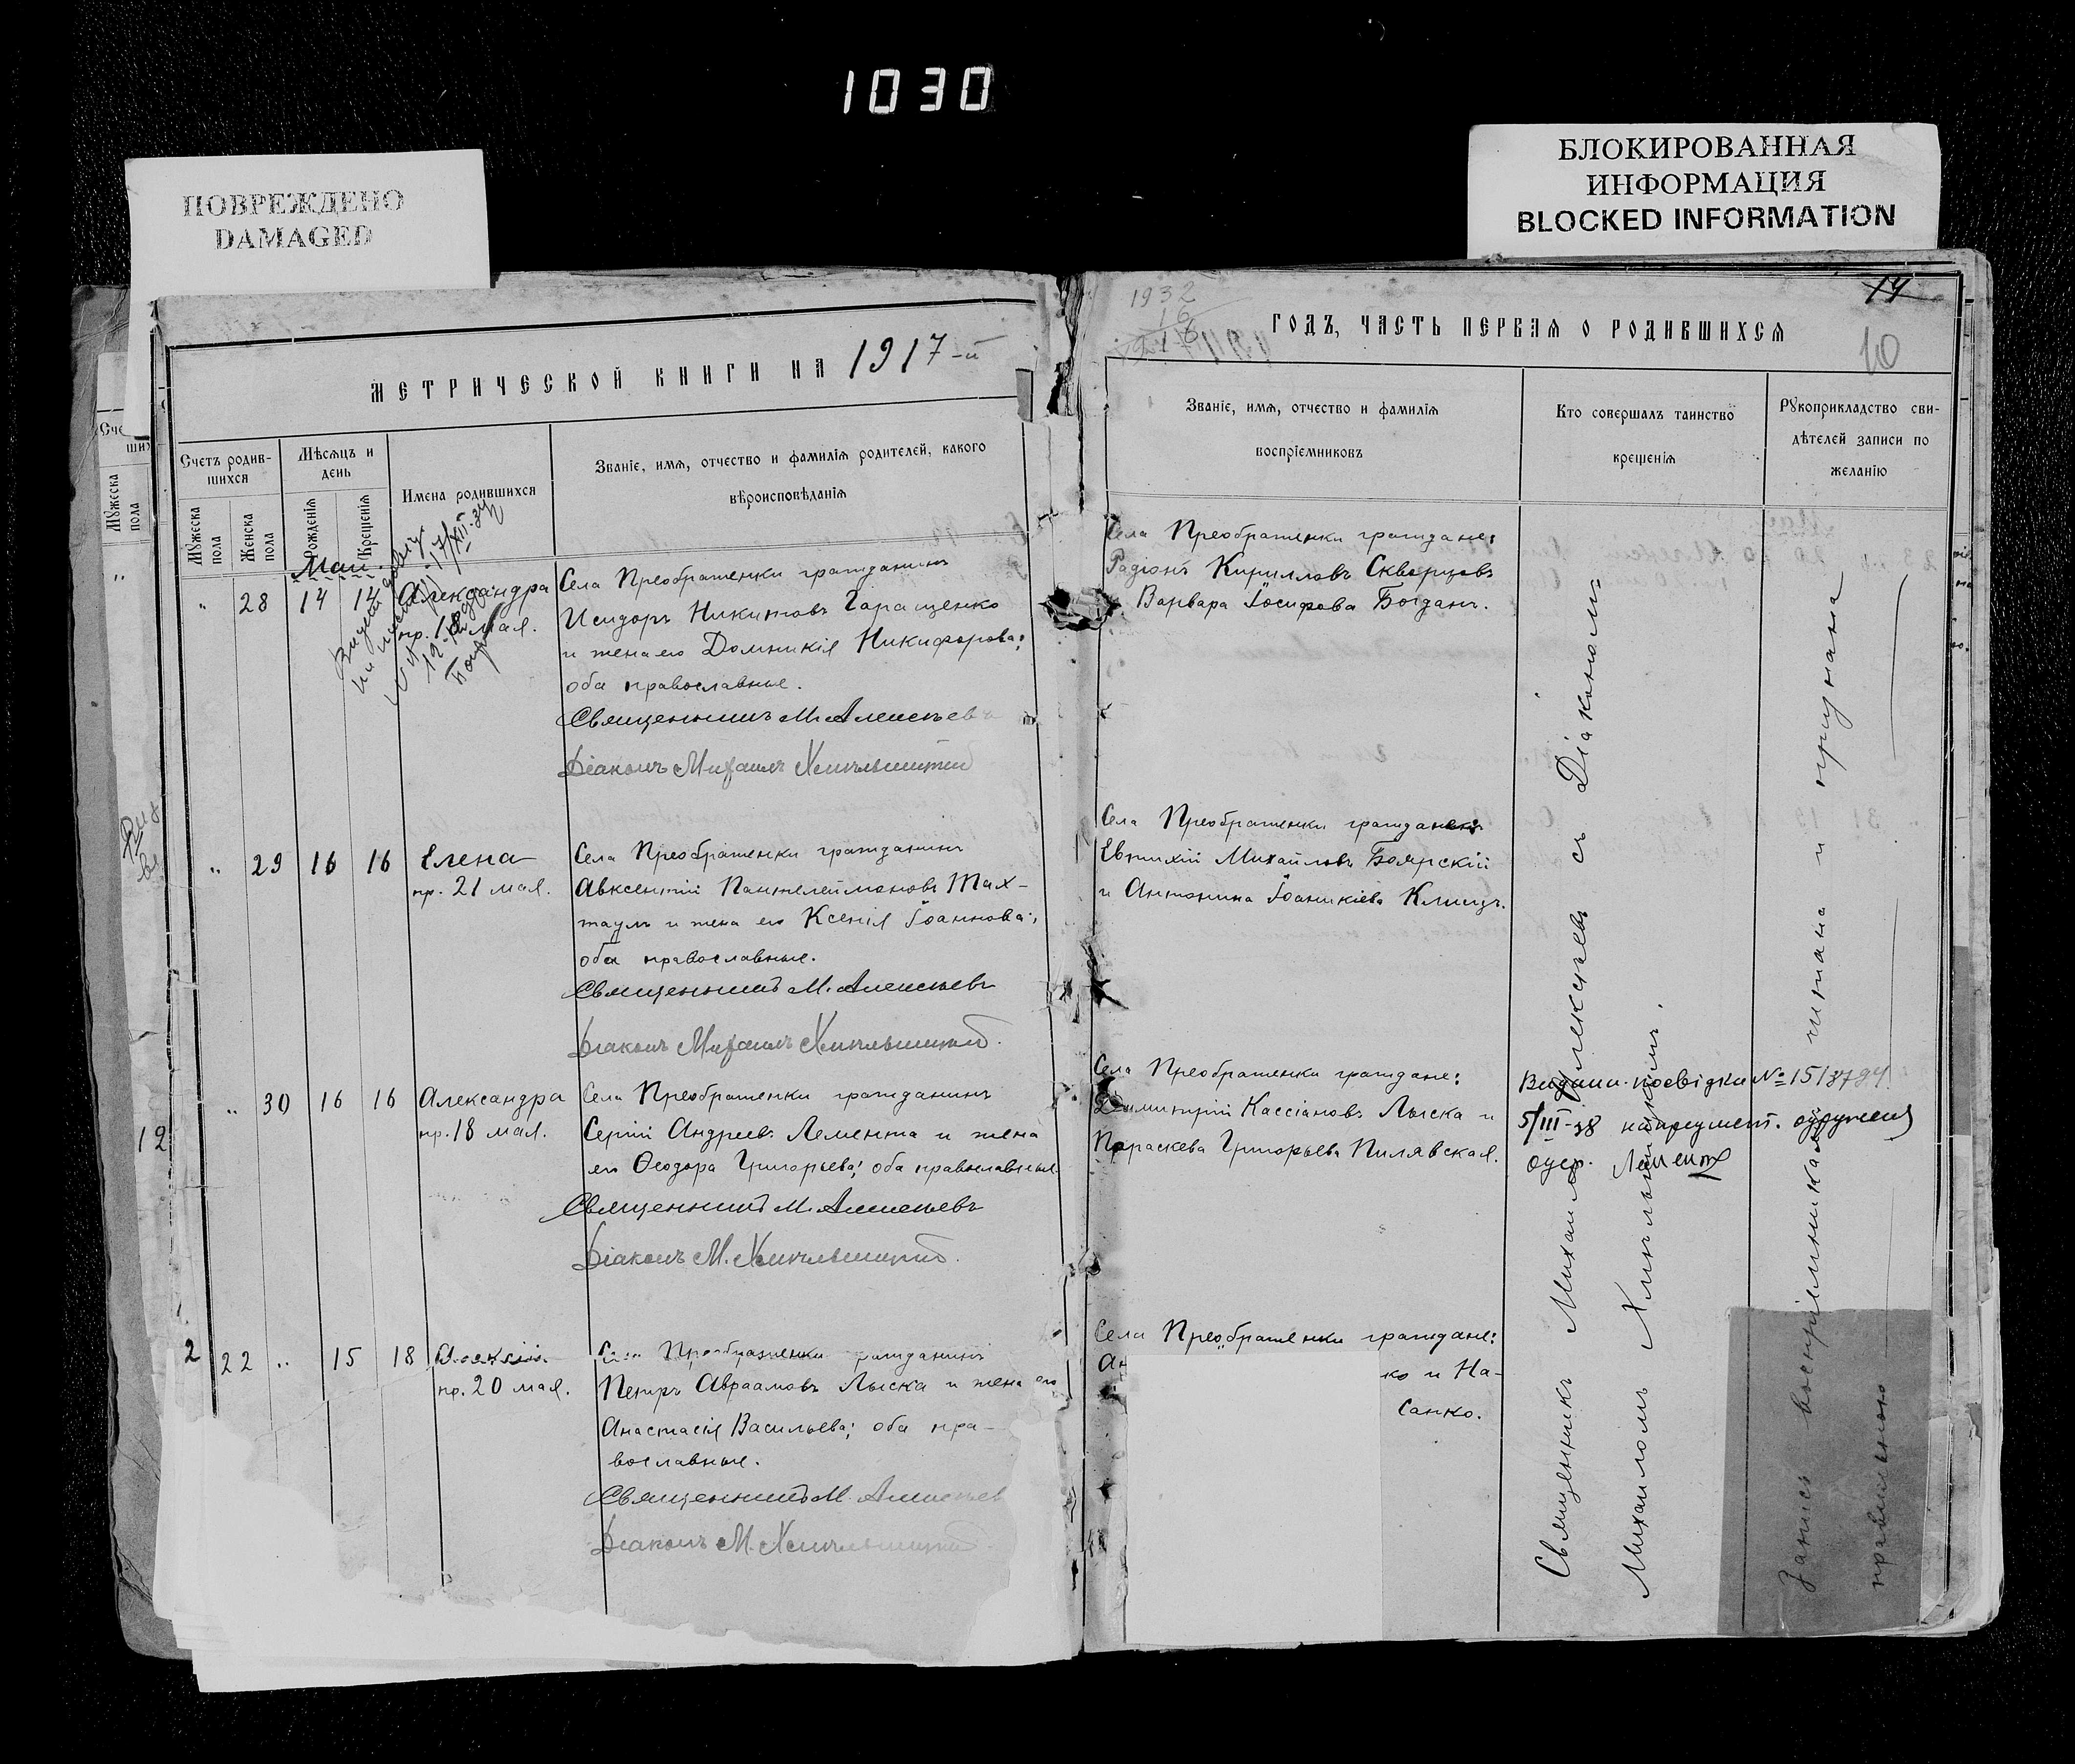 1030
ПОВРЕЖДЕНО
DAMAGED
БЛОКИРОВАННАЯ
ИНФОРМАЦИЯ
BLOCKED INFORMATION
МЕТРИЧЕСКОЙ КНИГИ НА 1917-й
Счетъ родив-
шихся
Мѣсяцъ и
день
Имена родившихся
Званіе, имя, отчество и фамилія родителей, какого
вѣроисповѣданія
Мужеска
пола
Женска
пола
Рожденія
Крещенія
Май.
" 28 14 14 Александра
пр. 18 мая.
Села Преображенки гражданинъ
Исидоръ Никитовъ Гаращенко
и жена его Домникія Никифорова;
оба православные.
Священникъ М. Алексѣевъ
Діаконъ Михаилъ Хмильницкій
" 29 16 16 Елена
пр. 21 мая.
Села Преображенки гражданинъ
Авксентій Пантелеймоновъ Тах-
таулъ и жена его Ксенія Іоаннова;
оба православные.
Священникъ М. Алексѣевъ
Діаконъ Михаилъ Хмильницкій.
" 30 16 16 Александра
пр. 18 мая.
Села Преображенки гражданинъ
Сергій Андреевъ Лемента и жена
его Ѳеодора Григорьева; оба православные
Священникъ М. Алексѣевъ
Діаконъ М. Хмильницкій.
22 " 15 18 Алексій
пр. 20 мая.
Села Преображенки гражданинъ
Петръ Авраамовъ Лыска и жена его
Анастасія Васильева; оба пра-
вославные.
Священникъ М. Алексѣев
Діаконъ М. Хмильницкій
12
2
1932
14
10
ГОДЪ, ЧАСТЬ ПЕРВАЯ О РОДИВШИХСЯ
Званіе, имя, отчество и фамилія
воспріемниковъ
Кто совершалъ таинство
крещенія
Рукоприкладство сви-
дѣтелей записи по
желанію
Села Преображенки граждане:
Радіонъ Кирилловъ Скварцовъ
Варвара Іосифова Богданъ.
Села Преображенки граждане:
Евтихій Михайловъ Боярскій
и Антонина Іоаникіева Клищъ.
Села Преображенки граждане:
Димитрій Кассіановъ Лыска и
Параскева Григорьева Пилявская.
Села Преображенки граждане:
Ан
ко и На-
Санко.
Священникъ Михаилъ Алексѣевъ съ Діакономъ
Михаиломъ Хмильницкимъ.
Видани посвідки №
5/III-38
Лемент
Запись воспріемниками читана и признана
правильною